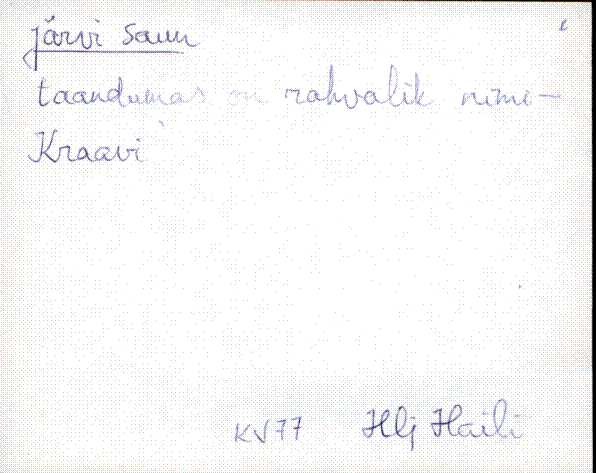 järvi saun
taandumas on rahvalik nimi-
Kraavi
KV77 Hlj Haili